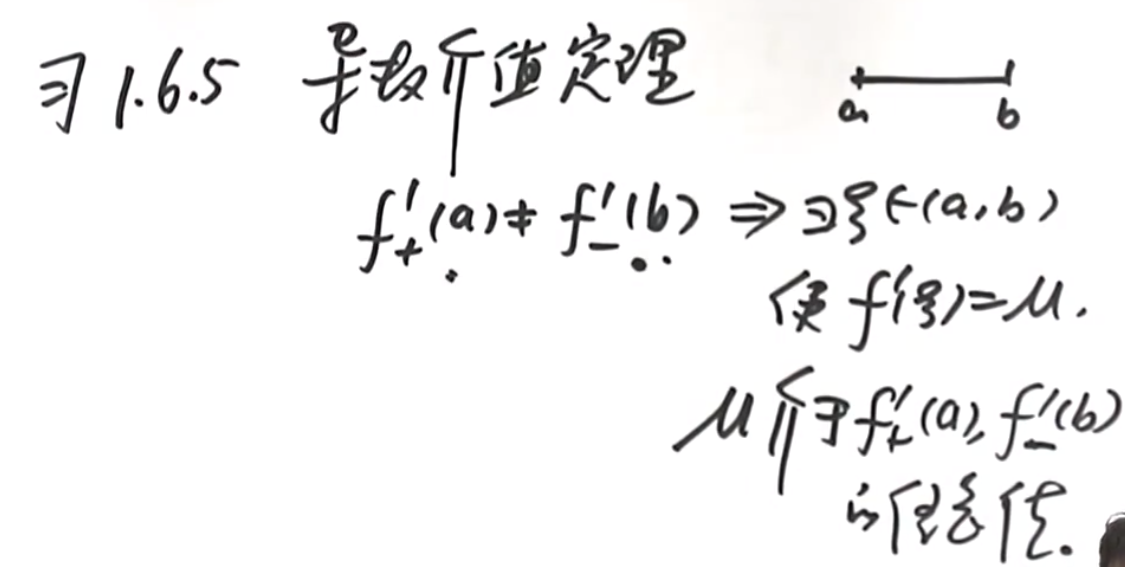 习1.6.5 导数介值定理
a b
f'₊(a)≠f'₋(b) ⇒ ∃ξ∈(a,b)
使f'(ξ)=μ.
μ介于f'₊(a),f'₋(b)
的任意值.